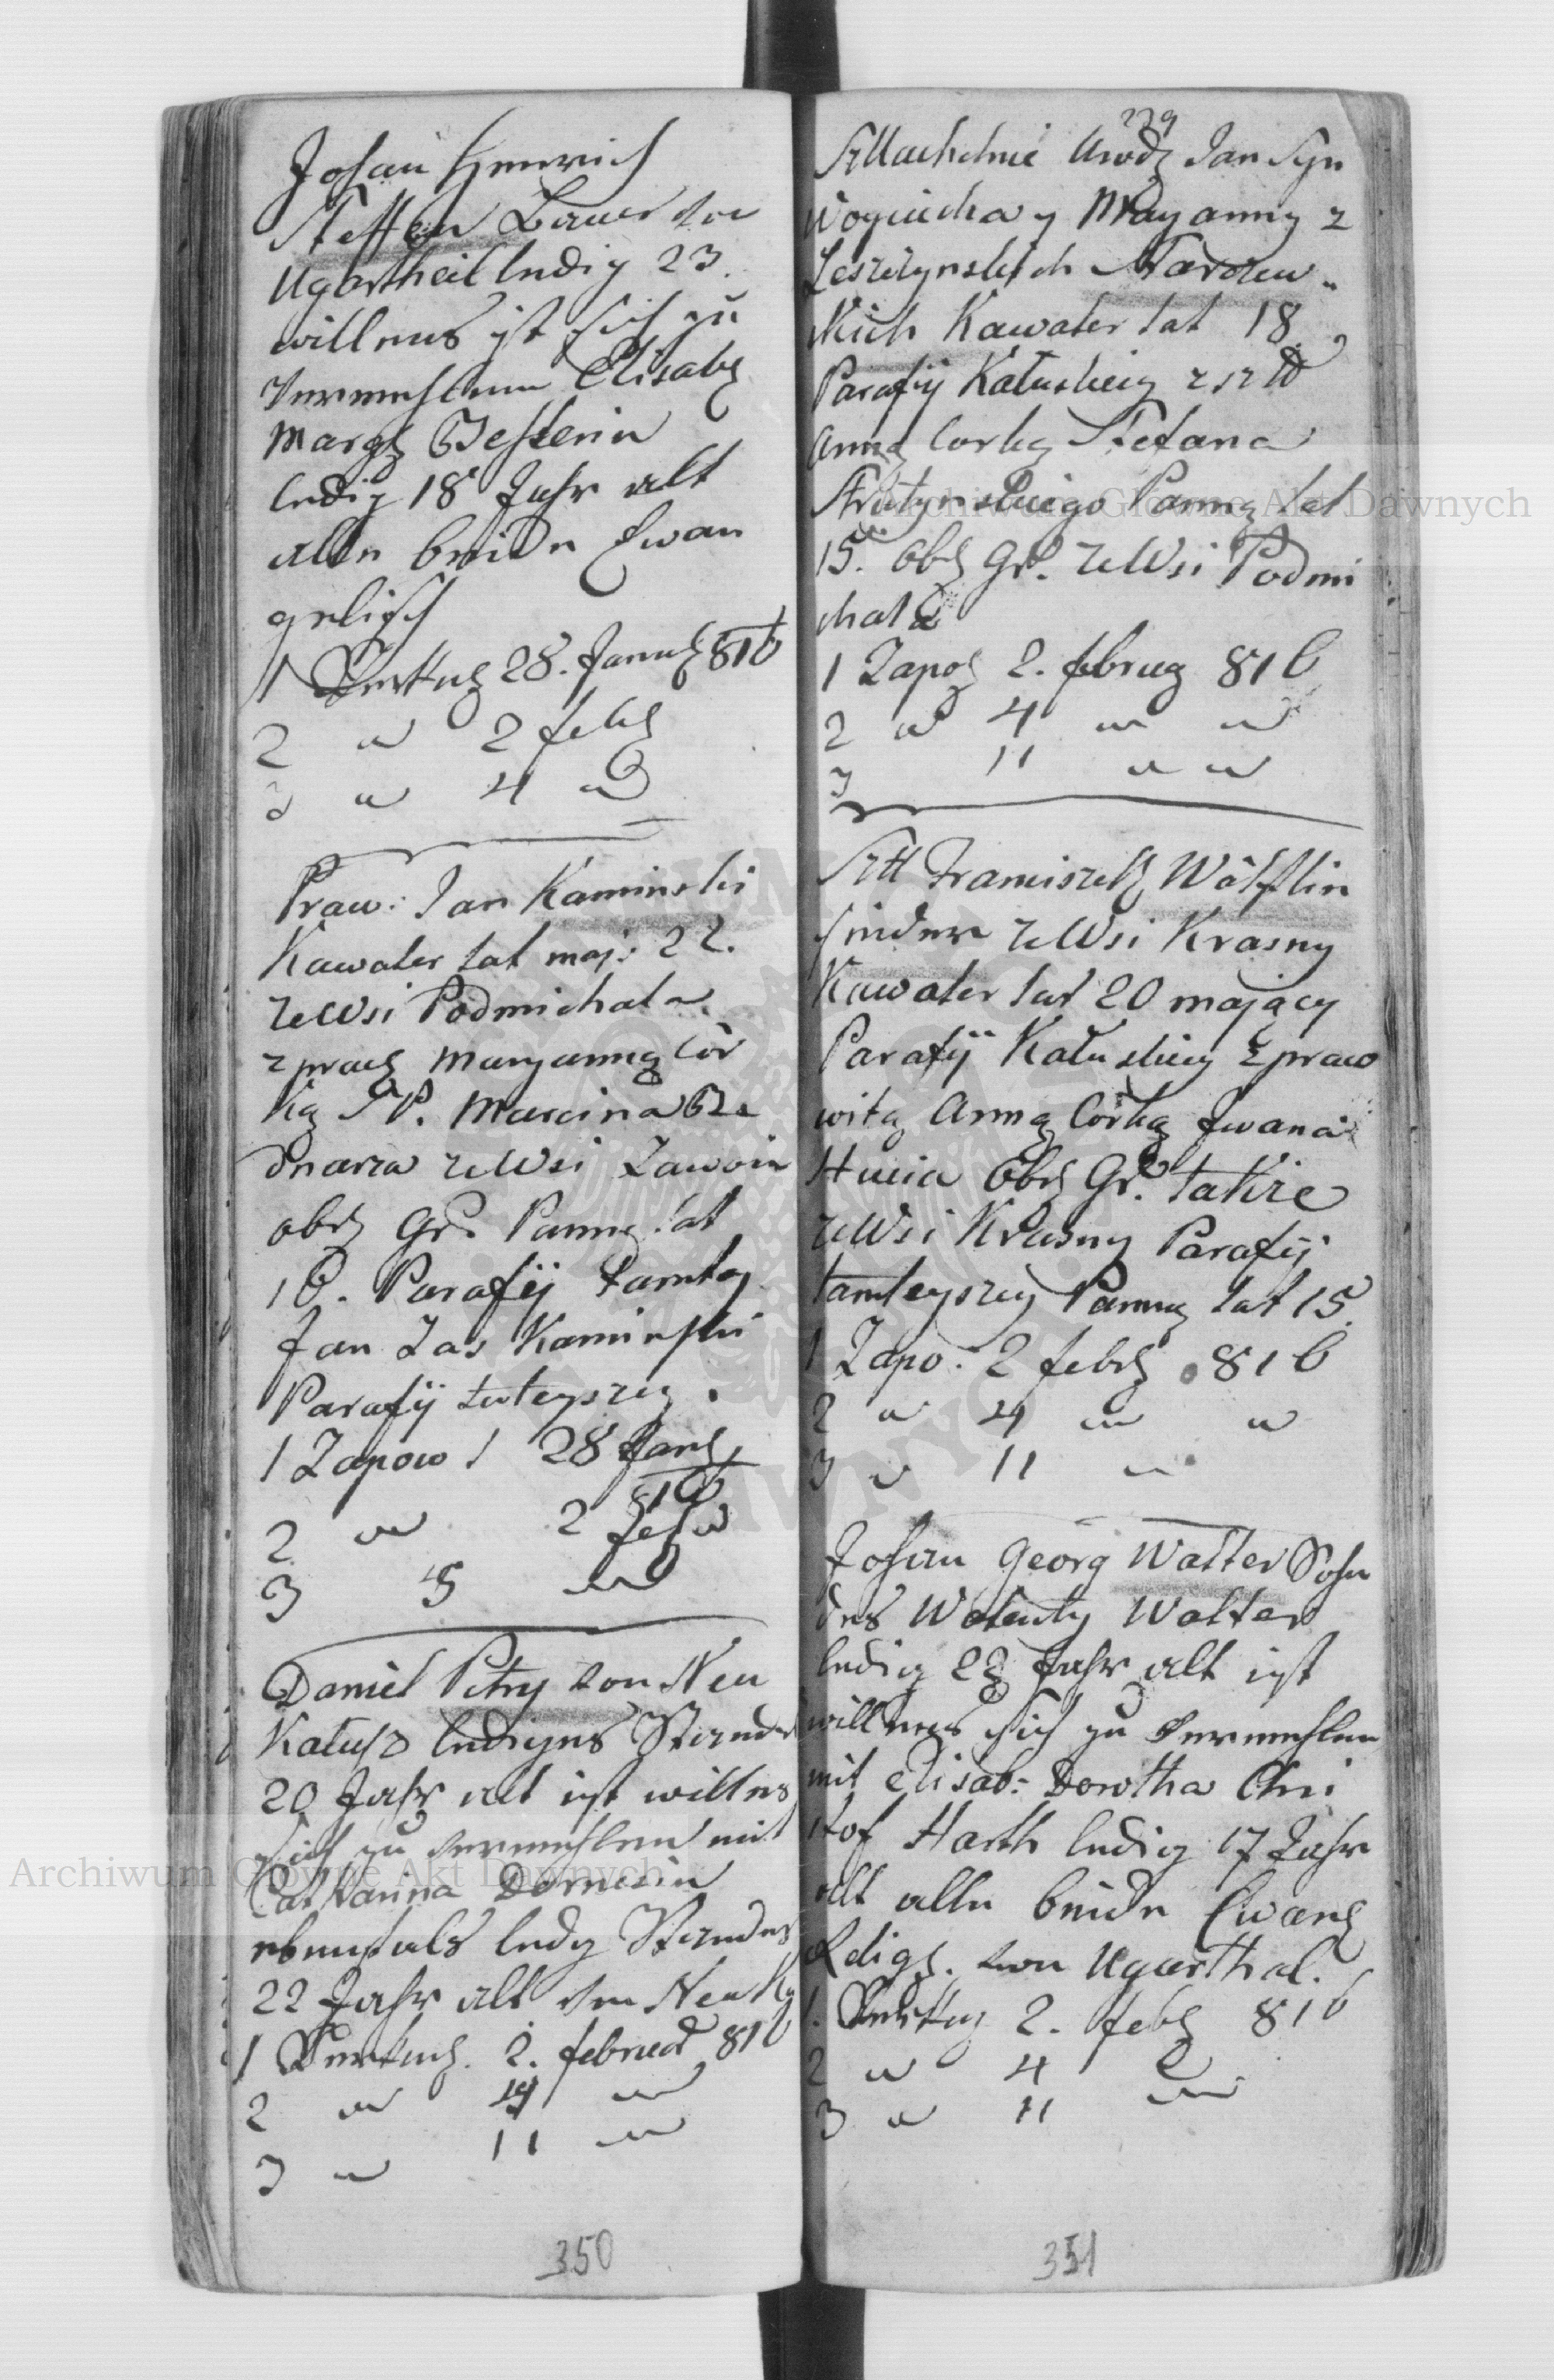 Johan Henrich
Steffen Bauer von
Ugartheil ledig 23.
willens ist sich zu
vermehlenn Elisab
Marg Besterin
ledig 18 Jahr alt
alle beide Ewan
gelisch
1 Verkug 28. Janu 816
2 " 2 feb
3 " 4 "
Praw: Jan Kaminski
Kawaler lat maj: 22.
ze Wsi Podmichala
z praw Maryanną Cór
ką SP. Marcina Be
dnarza ze Wsi Zawoin
obrz Gr. Panną lat
16. Parafij tamtey
Jan Zas Kaminski
Parafij tuteyszey.
1 Zapow 1 28 Jan
816
2 " 2 feb "
3 5 "
Daniel Petry von Neu
Kalusz lediges Stande
20 Jahr alt ist willens
sich zu vermehlen mit
Catharina Dornerin
ebenfals ledig Standes
22 Jahr alt von Neu K
1 Verkug. 2. februar 816
2 " 4 "
3 " 11 "
350
229
Szllachetnie Urodz Jan Syn
Woyciecha y Maryanny z
Leszczynskich Narozew
skich Kawaler lat 18
Parafij Kałuskiey z szld
Anną Corką Stefana
Strutynskiego Panną lat
15. Obrz Gr. ze Wsi Podmi
chala
1 Zapo 2. februa 816
2 " 4 " "
3 11 " "
Szll Franciszek Wölflin
singer ze Wsi Krasny
Kawaler lat 20 mający
Parafij Kałuskiey z praw
witą Anną Córką Iwana
Hucia Obrz Gr. także
ze Wsi Krasny Parafij
tamteyszey Panną lat 15
1 Zapo: 2 feb 816
2 " 4 " "
3 " 11 "
Johan Georg Walter Sohn
des Walenty Walter
ledig 23 Jahr alt ist
willens sich zu vermehlen
mit Elisab: Dorotha Chri
stof Harth ledig 17 Jahr
alt alle beide Ewang
Relig. von Ugarthal.
1. Verkug 2. feb 816
2 " 4 "
3 " 11 "
351
Archiwum Główne Akt Dawnych
Archiwum Główne Akt Dawnych